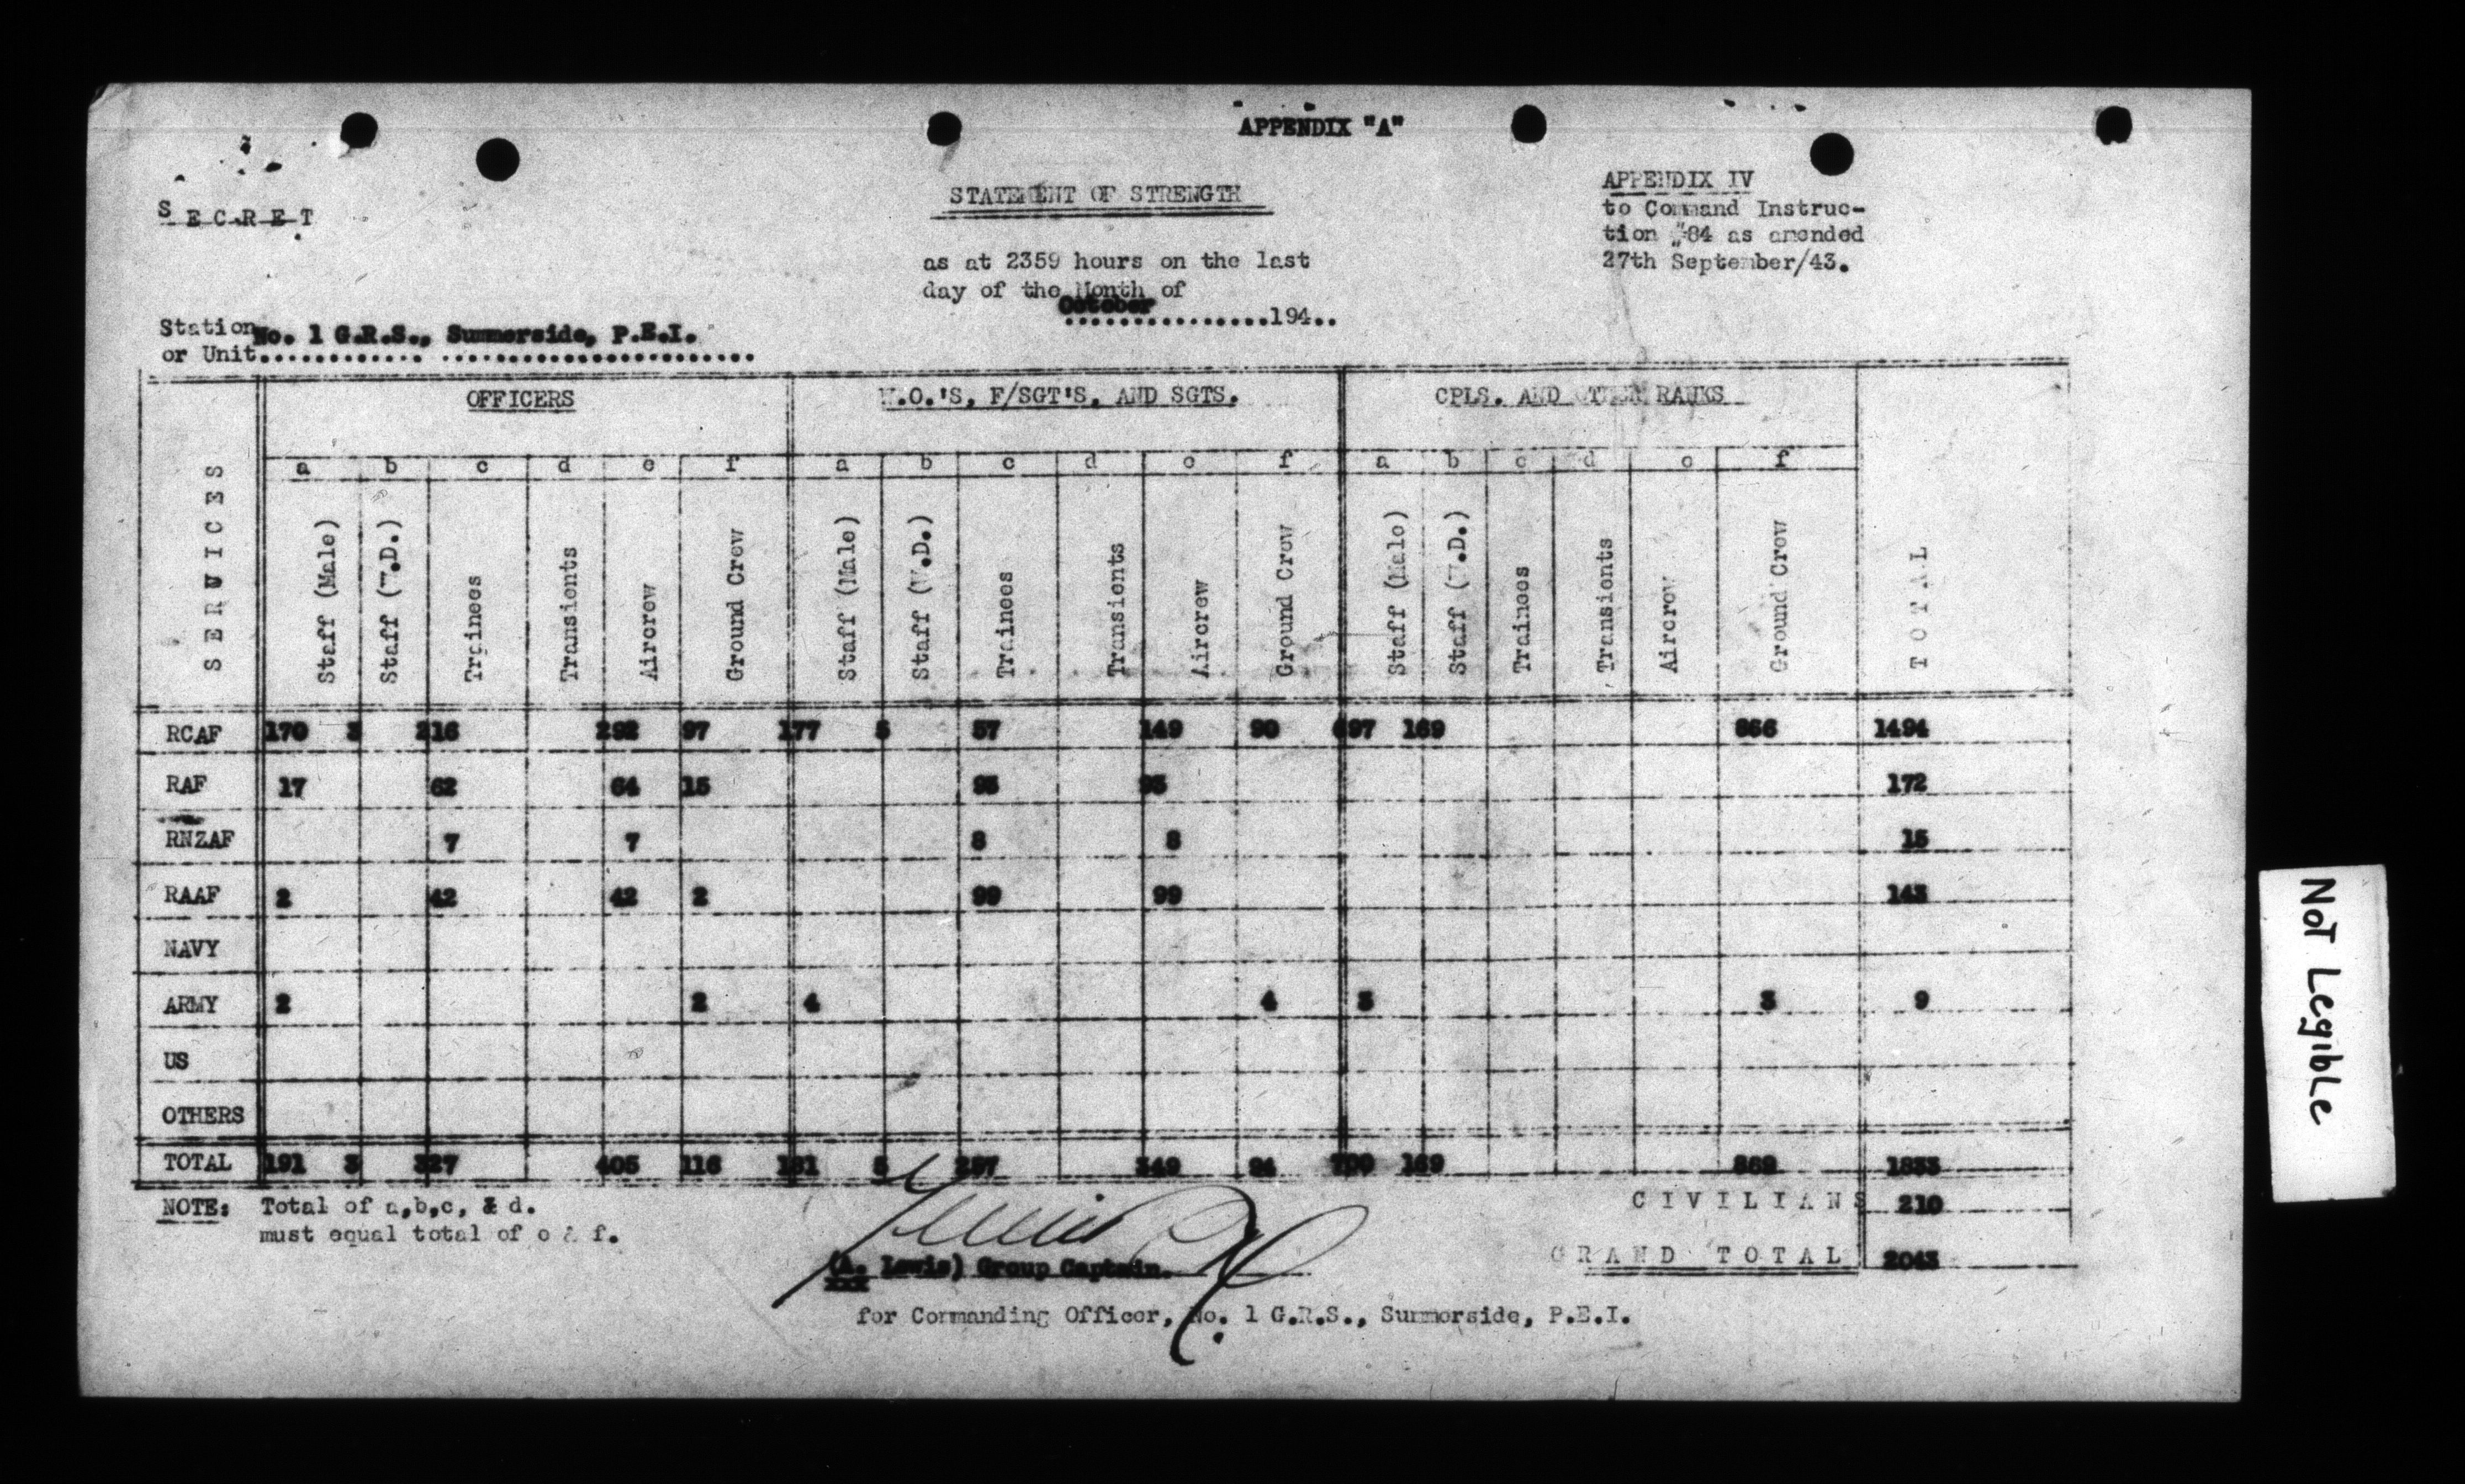 APPENDIX "A"
SECRET
STATEMENT OF STRENGTH
as at 2359 hours on the last
day of the Month of
October
................194..
APPENDIX IV
to Command Instruc-
tion #84 as amended
27th September/43.
Station No. 1 G.R.S., Summerside, P.E.I.
or Unit
SERVICES OFFICERS W.O.'S, F/SGT'S, AND SGTS. CPLS. AND OTHER RANKS TOTAL
a b c d e f a b c d e f a b c d e f
Staff (Male) Staff (W.D.) Trainees Transients Aircrew Ground Crew Staff (Male) Staff (W.D.) Trainees Transients Aircrew Ground Crew Staff (Male) Staff (W.D.) Trainees Transients Aircrew Ground Crew
RCAF 170 3 216 292 97 177 5 57 149 90 697 169 866 1494
RAF 17 62 64 15 93 93 172
RNZAF 7 7 8 8 15
RAAF 2 42 42 2 99 99 143
NAVY
ARMY 2 2 4 4 3 3 9
US
OTHERS
TOTAL 191 3 327 405 116 181 5 257 349 94 700 169 869 1833
NOTE: Total of a,b,c, & d.
must equal total of e & f.
CIVILIANS 210
GRAND TOTAL 2043
(A. Lewis) Group Captain.
for Commanding Officer, No. 1 G.R.S., Summerside, P.E.I.
Not Legible